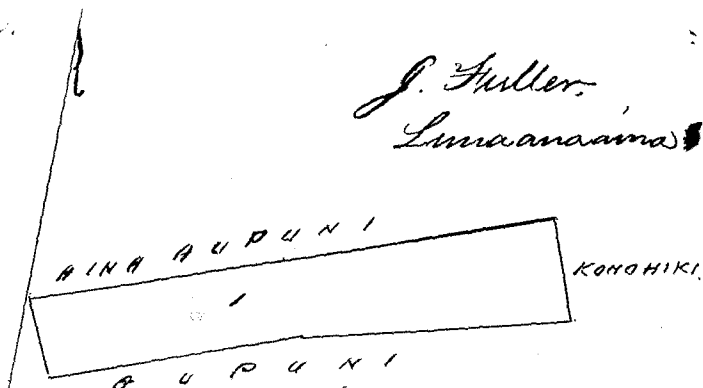 J. Fuller.
Lunaanaaina
AINA AUPUNI
KONOHIKI.
1
AUPUNI